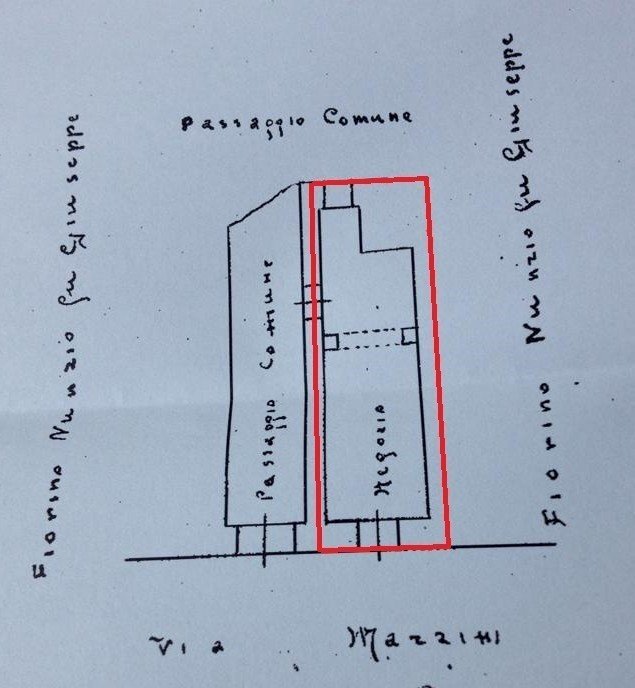 Passaggio Comune
Fiorino Nunzio fu Giuseppe
Passaggio Comune
Negozio
Fiorino Nunzio fu Giuseppe
Via Mazzini